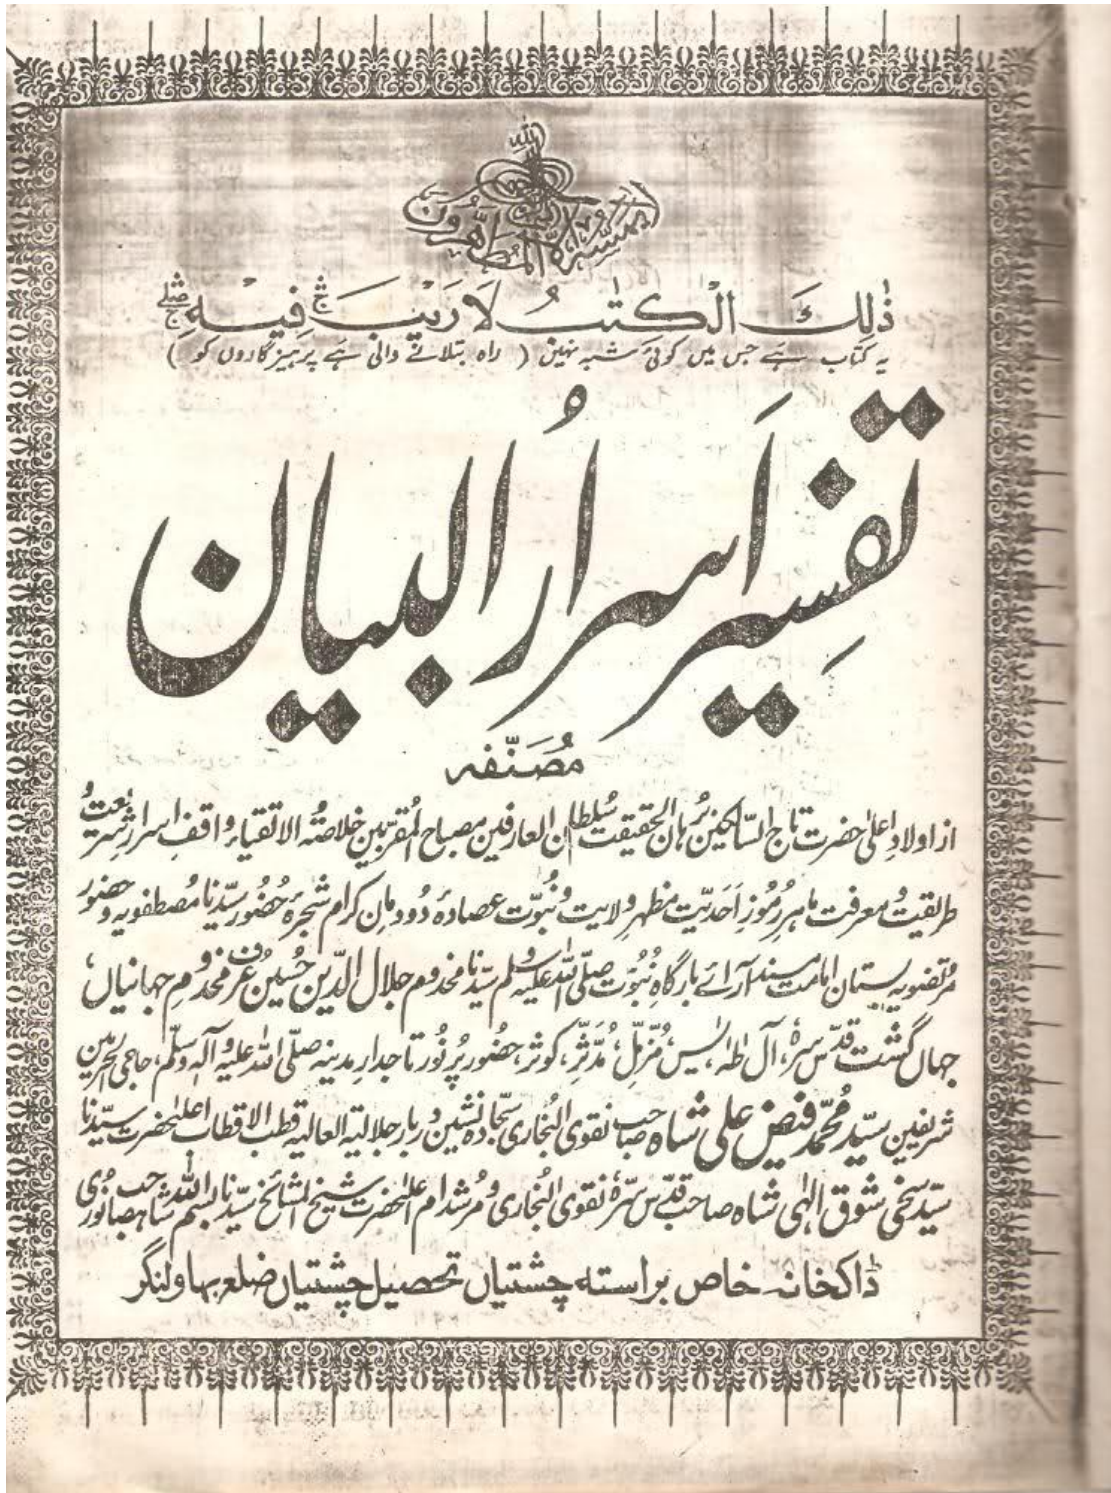 اللہ
لا یمسہ الا المطہرون
ذٰلِكَ الْكِتٰبُ لَا رَيْبَ ۛ فِيْهِ ۛ
یہ کتاب ہے جس میں کوئی شبہ نہیں ( راہ بتلانے والی ہے پرہیزگاروں کو )
تفسیر اَسرارُ البیان
مُصَنّفہ
از اولادِ اعلیٰ حضرت تاج السّالکین بُرہان الحقیقت سُلطان العارفین مصباح المُقربین خلاصتہ الاتقیاء واقفِ اسرارِ شریعت و
طریقت و معرفت ماہرِ رُموزِ اَحدیّت مظہرِ ولایت و نُبوّت عصادہ دُودمانِ کرام شجرۂ حُضور سیّدنا مُصطفویہ و حضور
مُرتضویہ بستان امامت مسند آرائے بارگاہِ نُبوّت صلّی اللہ علیہ وسلم سیّدنا مخدوم جلال الدّین حُسین عُرف مخدومِ جہانیاں،
جہاں گشت قدّس سرہٗ، آل طٰہٰ، یٰس، مُزّمِّل، مُدَّثِّر، کوثر، حضور پُر نُور تاجدارِ مدینہ صلّی اللہ علیہ وآلہٖ وسلّم، حاجی الحرمین
شریفین سیّد مُحمّد فیض علی شاہ صاحب نقوی البُخاری سجّادہ نشین دربار جلالیّہ العالیہ قطب الاقطاب اعلیٰحضرت سیّدنا
سیّد سخی شوق الٰہی شاہ صاحب قدّس سرّہٗ نقوی البُخاری و مُرشدام اعلیٰحضرت شیخ المشائخ سیّدنا بسم اللہ شاہ صاحب نُوری
ڈاکخانہ خاص براستہ چشتیاں تحصیل چشتیاں ضلع بہاولنگر